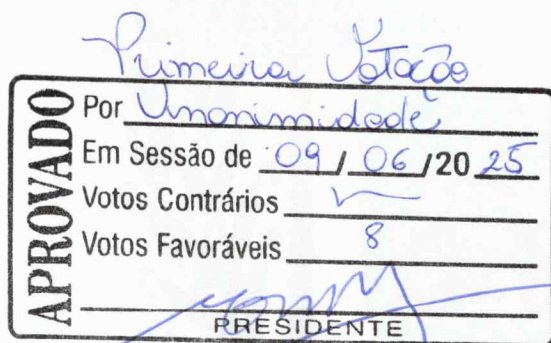 Primeira Votação
APROVADO
Por Unanimidade
Em Sessão de 09 / 06 /20 25
Votos Contrários
Votos Favoráveis 8
PRESIDENTE